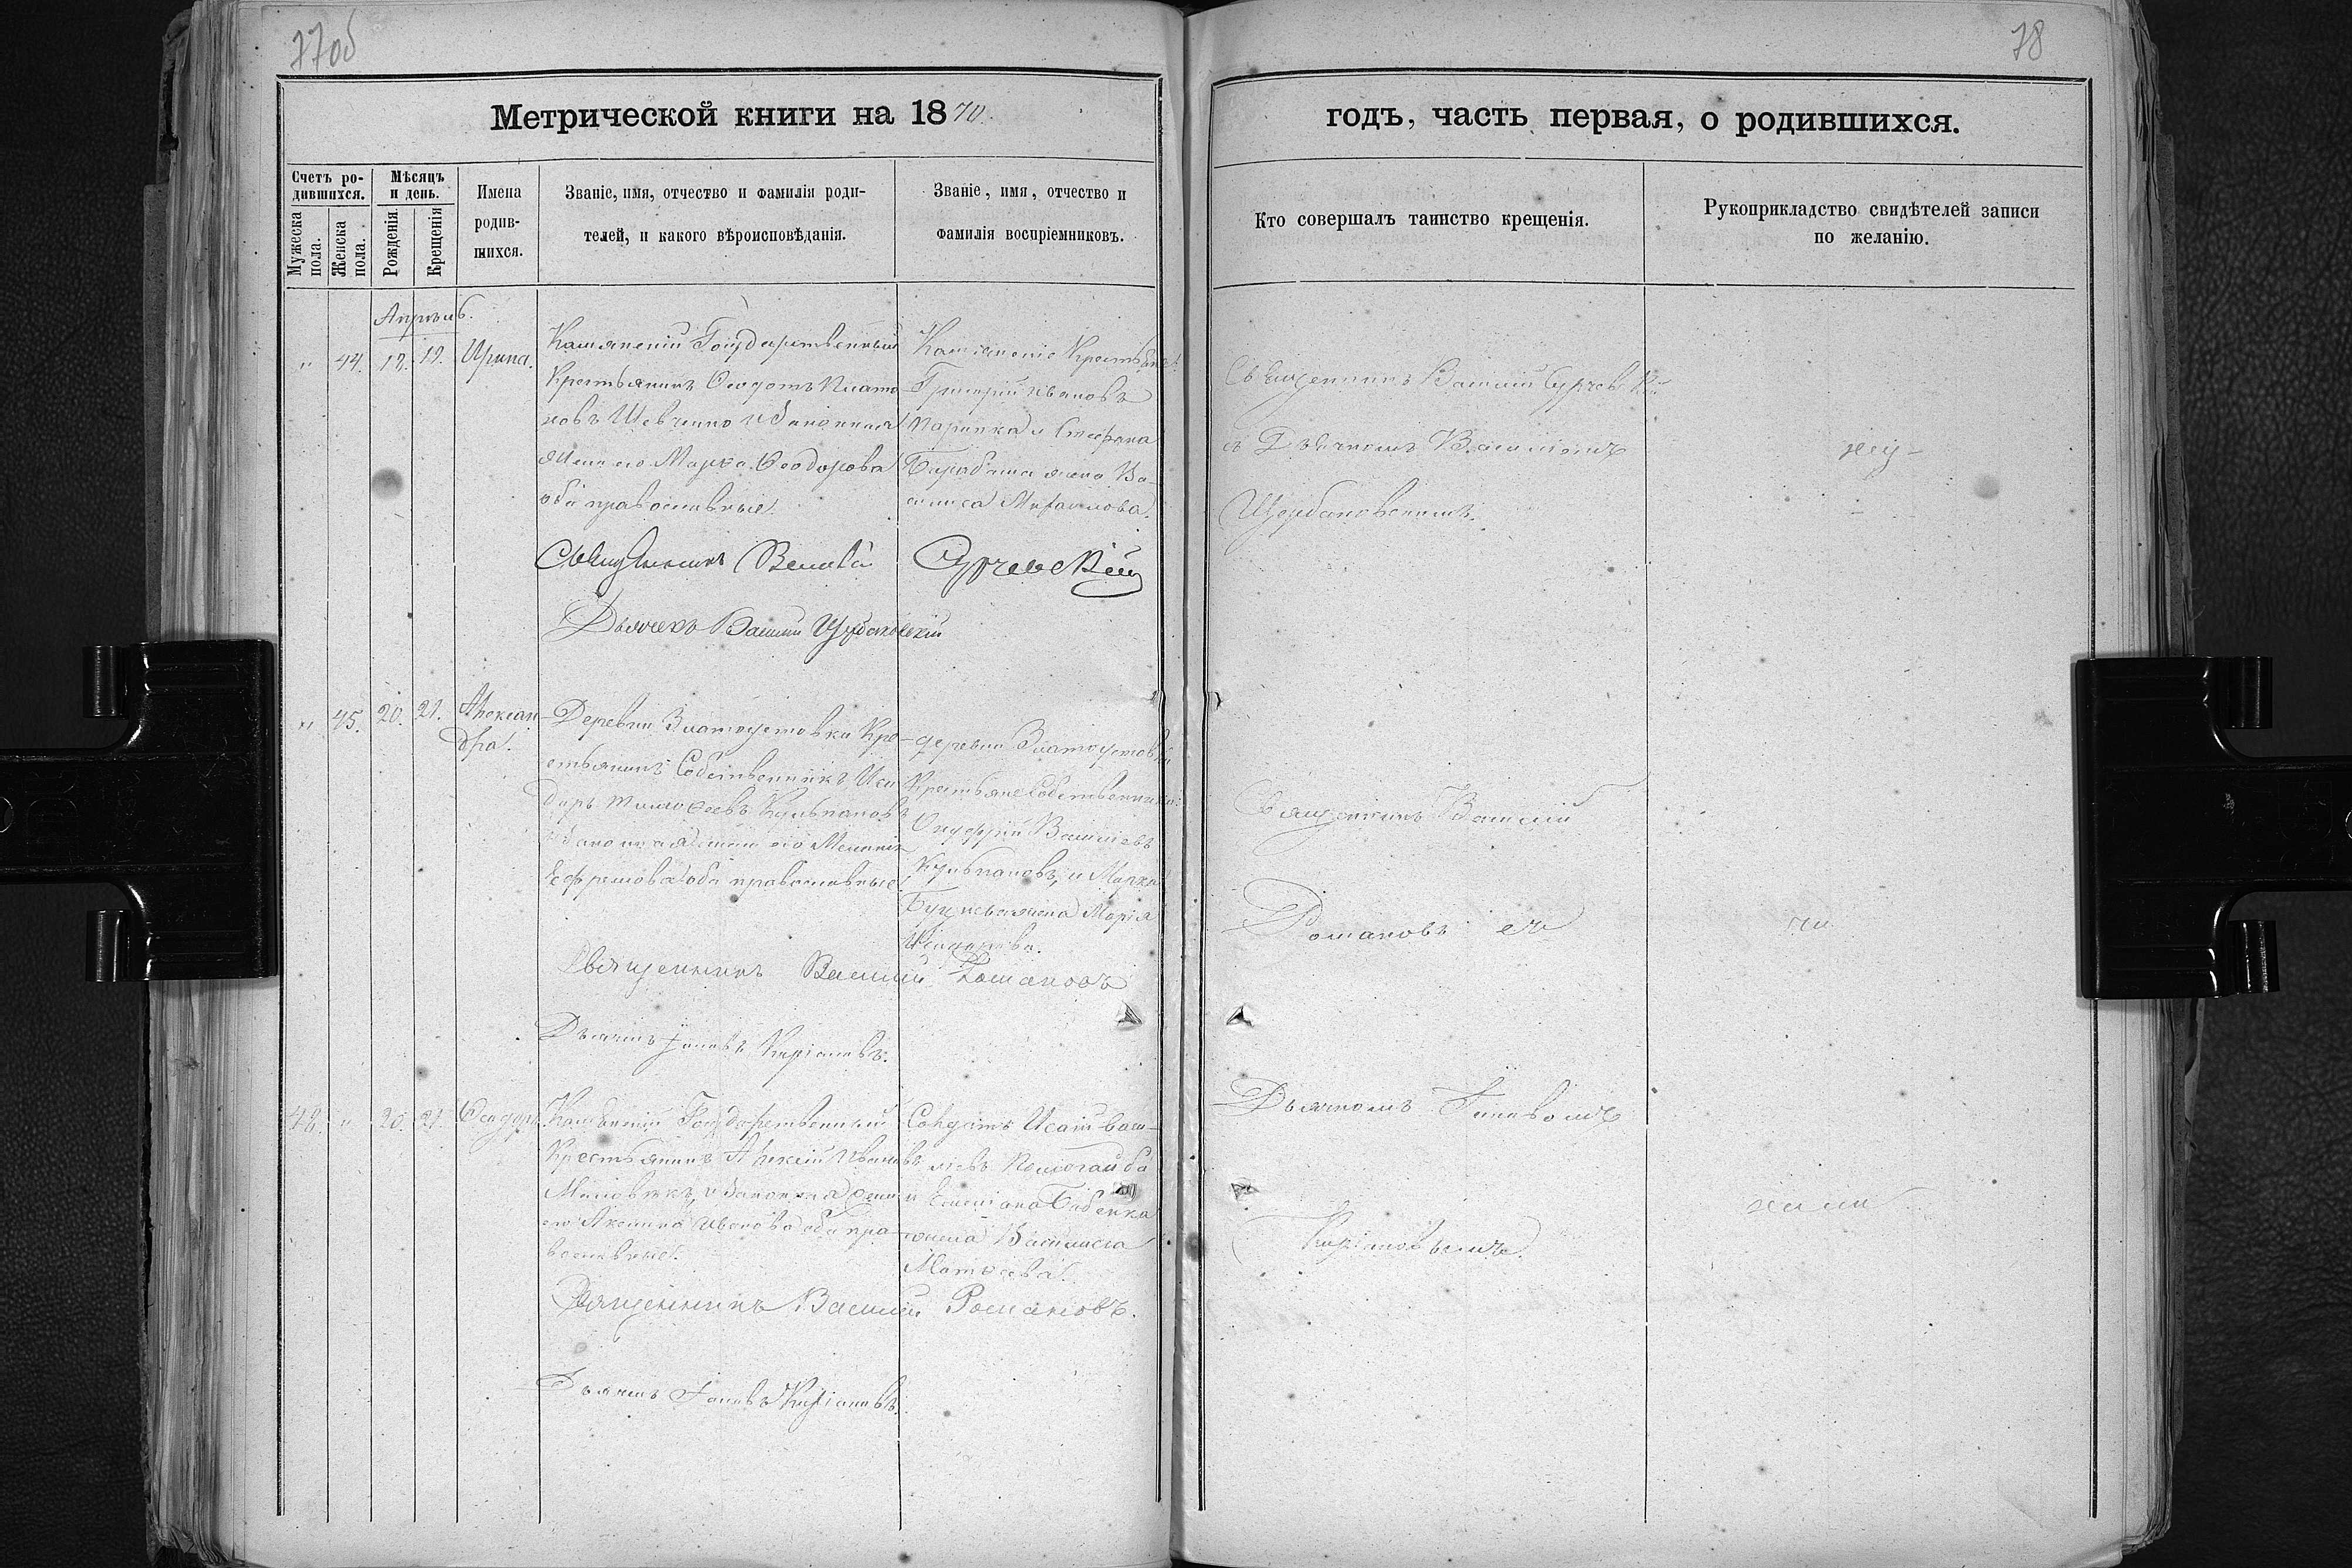 77об
78
Метрической книги на 1870.
годъ, часть первая, о родившихся.
Счетъ ро-
дившихся.
Мужеска пола.
Женска пола.
Мѣсяцъ
и день.
Рожденія
Крещенія
Имена
родив-
шихся.
Званіе, имя, отчество и фамилія роди-
телей, и какого вѣроисповѣданія.
Званіе, имя, отчество и
фамилія воспріемниковъ.
Кто совершалъ таинство крещенія.
Рукоприкладство свидѣтелей записи
по желанію.
Апрѣль.
" 44. 12. 19. Ирина.
Государственный
Крестьянинъ Ѳеодотъ Плато
новъ Шевченко и законная
жена его Марѳа Ѳеодорова
оба православные.
Крестьяне:
Григорій Ивановъ
и Стефана
жена Ва-
силиса Михаилова.
Священникъ Василій Сурчевскій
Дьячекъ Василій Щербаковскій
Священникъ Василій Сурчевскій
съ Дьячкомъ Василіемъ
Щербаковскимъ.
" 45. 20. 21. Алексан-
дра.
Деревни Златоустовки Кре-
стьянинъ Собственникъ Иси
доръ Тимоѳеевъ Кульпановъ
и законная жена его Меланія
Ефремова оба православные
деревни Златоустовки
Крестьяне Собственники:
Онуфрій Василіевъ
Кульпановъ, и Марка
жена Марія
Священникъ Василій Романовъ
Дьячекъ Іаковъ Киріановъ.
Священникъ Василій
Романовъ съ
Дьячкомъ Іаковомъ
Киріановымъ.
48. " 20. 21. Ѳеодоръ.
Государственный
Крестьянинъ Алексій Ивановъ
и законная жена
его Акилина Иванова оба пра-
вославные.
Солдатъ Исаій Васи-
ліевъ
и Бабенка
жена Василиса
Матѳеева.
Священникъ Василій Романовъ.
Дьячекъ Іаковъ Киріановъ.